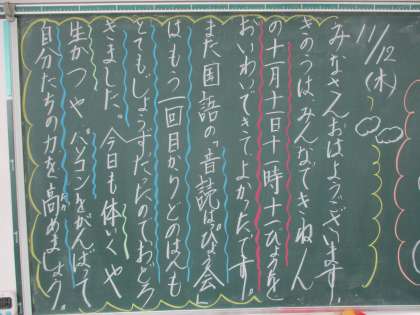 11/12(木)
みなさんおはようございます。
きのうは、みんなできねん
の十一月十一日十一時十一ぴょうを
おいわいできてよかったです。
また国語の「音読はっぴょう会」
はもう一回目からどのはんも
とてもじょうずだったのでおどろ
きました。今日も体いくや
生かつや、パソコンをがんばって
自分たちの力を高めましょう。